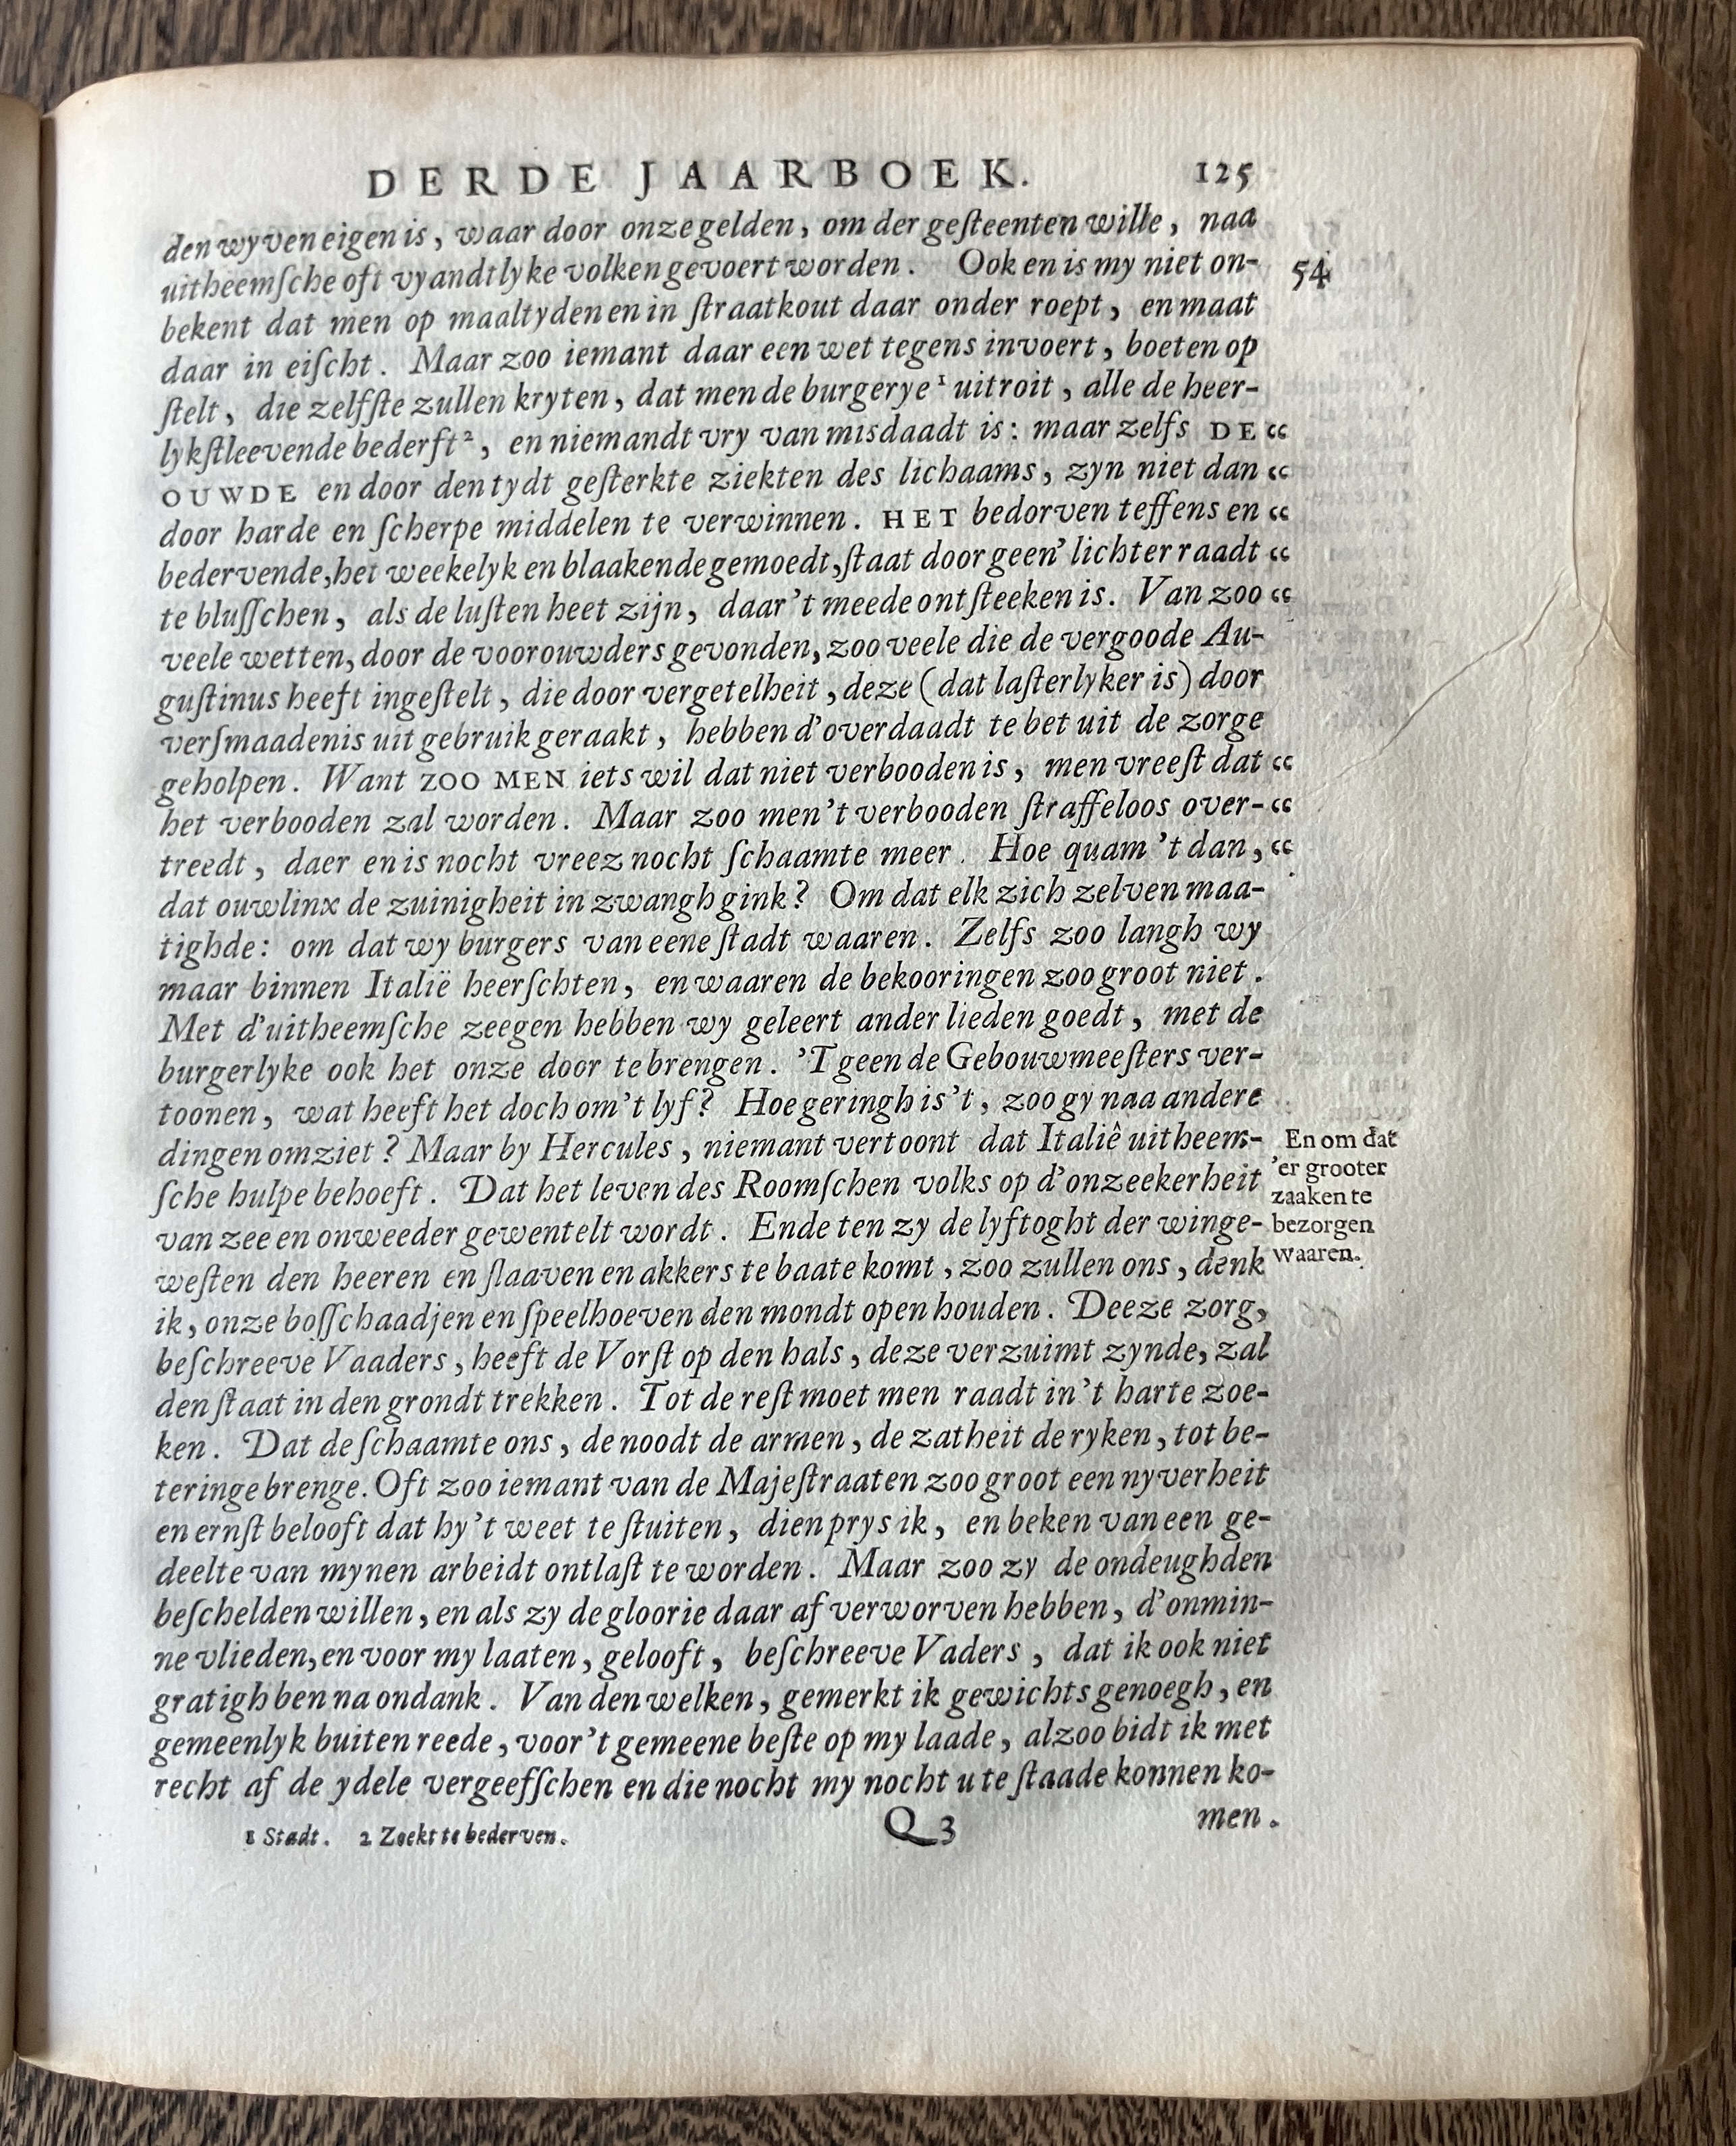 DERDE JAARBOEK. 125
den wyven eigen is, waar door onze gelden, om der geſteenten wille, naa
uitheemſche oft vyandtlyke volken gevoert worden. Ook en is my niet on- 54
bekent dat men op maaltyden en in ſtraatkout daar onder roept, en maat
daar in eiſcht. Maar zoo iemant daar een wet tegens invoert, boeten op
ſtelt, die zelfſte zullen kryten, dat men de burgerye¹ uitroit, alle de heer-
lykſtleevende bederft², en niemandt vry van misdaadt is: maar zelfs DE “
OUWDE en door den tydt geſterkte ziekten des lichaams, zyn niet dan “
door harde en ſcherpe middelen te verwinnen. HET bedorven teffens en “
bedervende, het weekelyk en blaakende gemoedt, ſtaat door geen' lichter raadt “
te bluſſchen, als de luſten heet zijn, daar't meede ontſteeken is. Van zoo “
veele wetten, door de voorouwders gevonden, zoo veele die de vergoode Au-
guſtinus heeft ingeſtelt, die door vergetelheit, deze (dat laſterlyker is) door
verſmaadenis uit gebruik geraakt, hebben d'overdaadt te bet uit de zorge
geholpen. Want ZOO MEN iets wil dat niet verbooden is, men vreeſt dat “
het verbooden zal worden. Maar zoo men't verbooden ſtraffeloos over- “
treedt, daer en is nocht vreez nocht ſchaamte meer. Hoe quam 't dan, “
dat ouwlinx de zuinigheit in zwangh gink? Om dat elk zich zelven maa-
tighde: om dat wy burgers van eene ſtadt waaren. Zelfs zoo langh wy
maar binnen Italië heerſchten, en waaren de bekooringen zoo groot niet.
Met d'uitheemſche zeegen hebben wy geleert ander lieden goedt, met de
burgerlyke ook het onze door te brengen. 'T geen de Gebouwmeeſters ver-
toonen, wat heeft het doch om't lyf? Hoe geringh is't, zoo gy naa andere
dingen omziet? Maar by Hercules, niemant vertoont dat Italiê uitheem-
ſche hulpe behoeft. Dat het leven des Roomſchen volks op d'onzeekerheit
van zee en onweeder gewentelt wordt. Ende ten zy de lyftoght der winge-
weſten den heeren en ſlaaven en akkers te baate komt, zoo zullen ons, denk
ik, onze boſſchaadjen en ſpeelhoeven den mondt open houden. Deeze zorg,
beſchreeve Vaaders, heeft de Vorſt op den hals, deze verzuimt zynde, zal
den ſtaat in den grondt trekken. Tot de reſt moet men raadt in't harte zoe-
ken. Dat de ſchaamte ons, de noodt de armen, de zatheit de ryken, tot be-
teringe brenge. Oft zoo iemant van de Majeſtraaten zoo groot een nyverheit
en ernſt belooft dat hy't weet te ſtuiten, dien prys ik, en beken van een ge-
deelte van mynen arbeidt ontlaſt te worden. Maar zoo zy de ondeughden
beſchelden willen, en als zy de gloorie daar af verworven hebben, d'onmin-
ne vlieden, en voor my laaten, gelooft, beſchreeve Vaders, dat ik ook niet
gratigh ben na ondank. Van den welken, gemerkt ik gewichts genoegh, en
gemeenlyk buiten reede, voor't gemeene beſte op my laade, alzoo bidt ik met
recht af de ydele vergeefſchen en die nocht my nocht u te ſtaade konnen ko-
Q 3 men.
1 Stadt. 2 Zoekt te bederven.
En om dat
'er grooter
zaaken te
bezorgen
waaren.